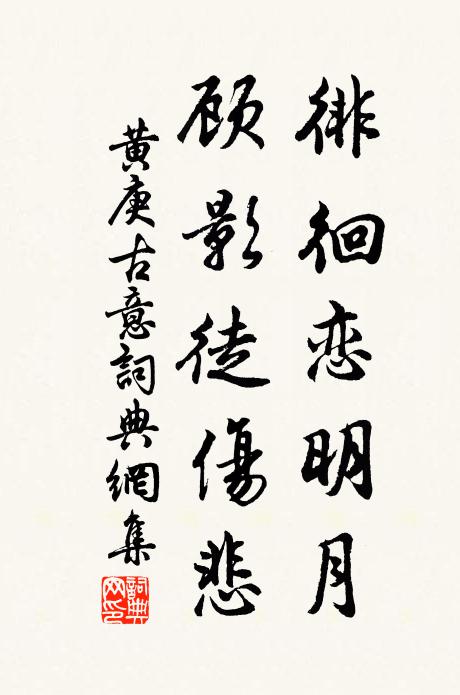 徘徊恋明月
顾影徒傷悲
黄庚古意詞典網集
詞典網印